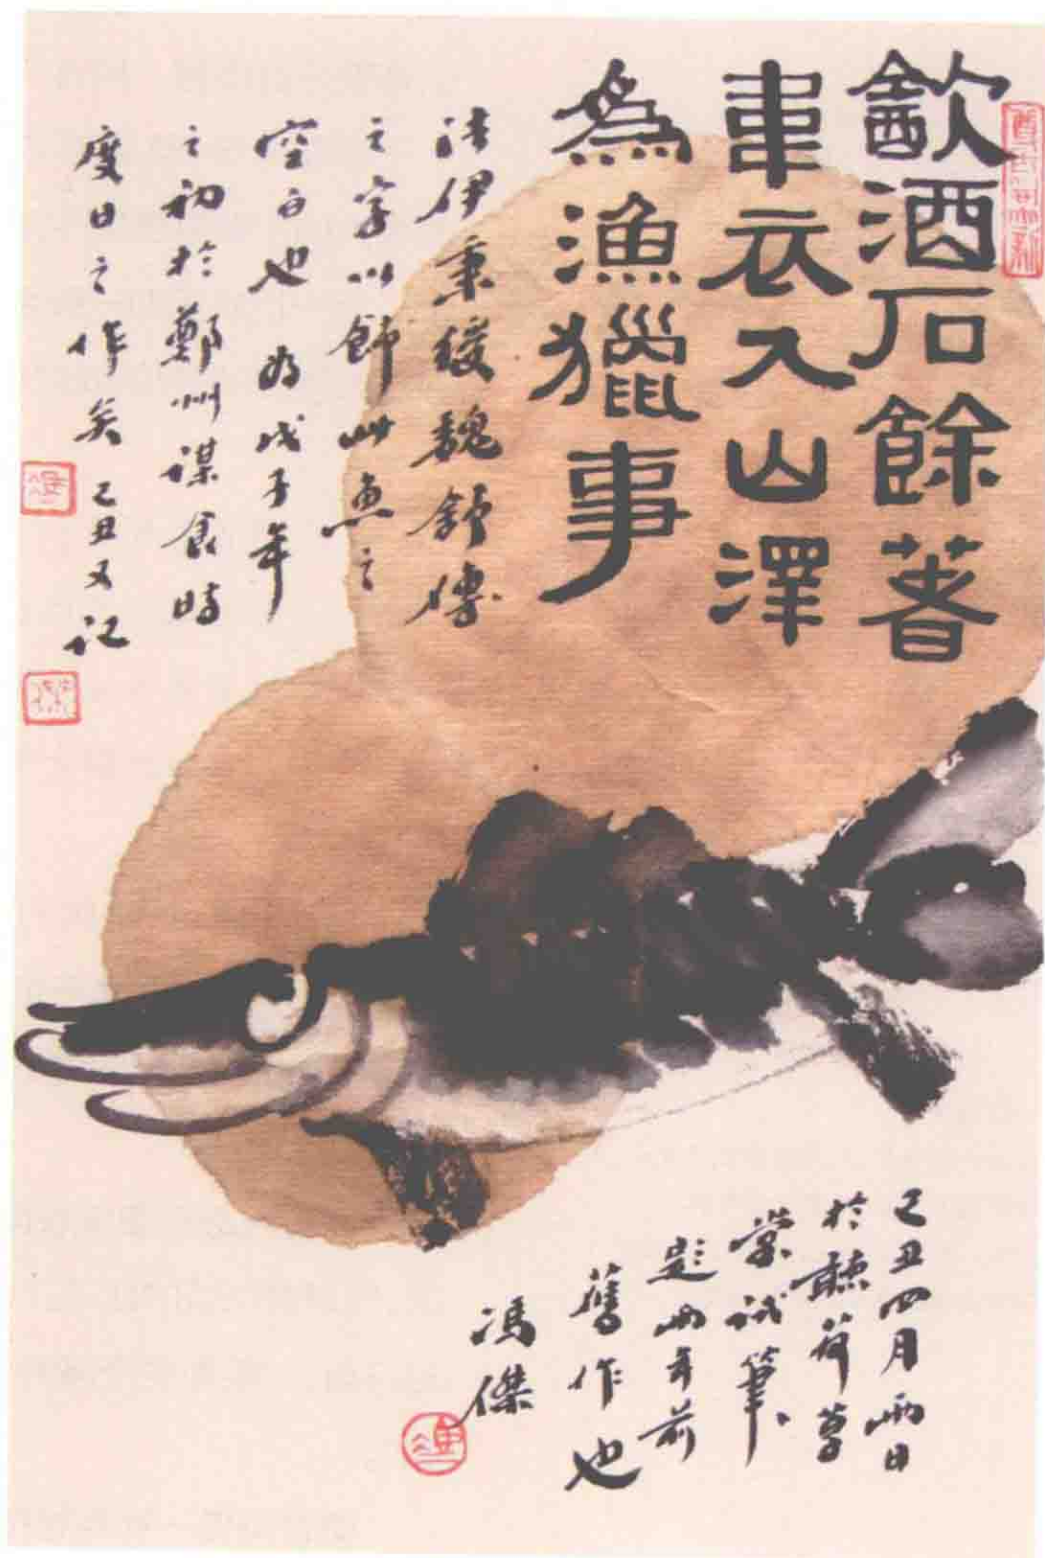 㱃酒石餘著
韋衣入山澤
為漁獵事
清伊秉綬魏舒傳
之字以飾此魚之
空白也 為戊子年
之初於鄭州謀食時
度日之作矣 己丑又記
己丑四月雨日
於聽荷草
堂試筆
題兩年前
舊作也
馮傑